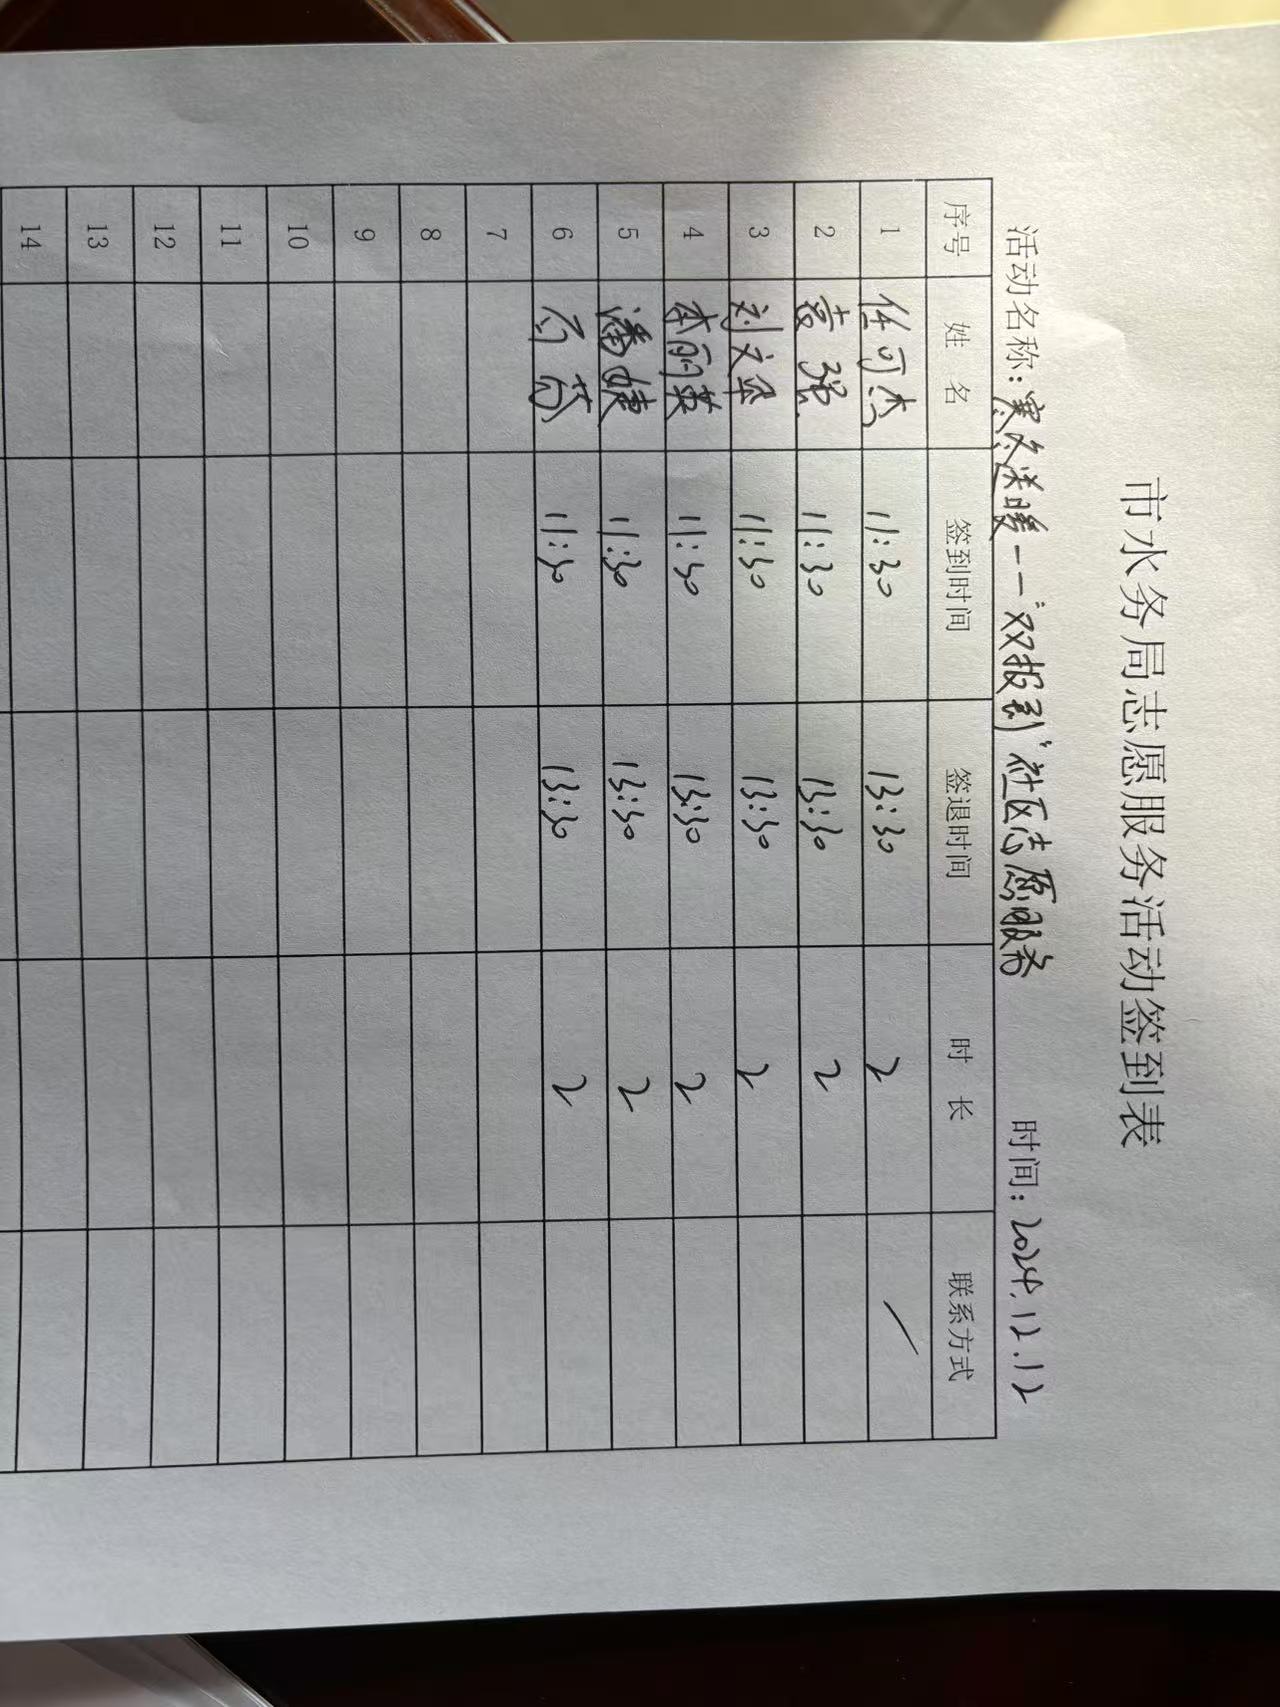 市水务局志愿服务活动签到表
活动名称:寒冬送暖——"双报到"社区志愿服务 时间:2024.12.12
序号 姓 名 签到时间 签退时间 时 长 联系方式
1 任可杰 11:30 13:30 2
2 袁强 11:30 13:30 2
3 刘文 11:30 13:30 2
4 李丽英 11:30 13:30 2
5 潘婕 11:30 13:30 2
6 11:30 13:30 2
7
8
9
10
11
12
13
14